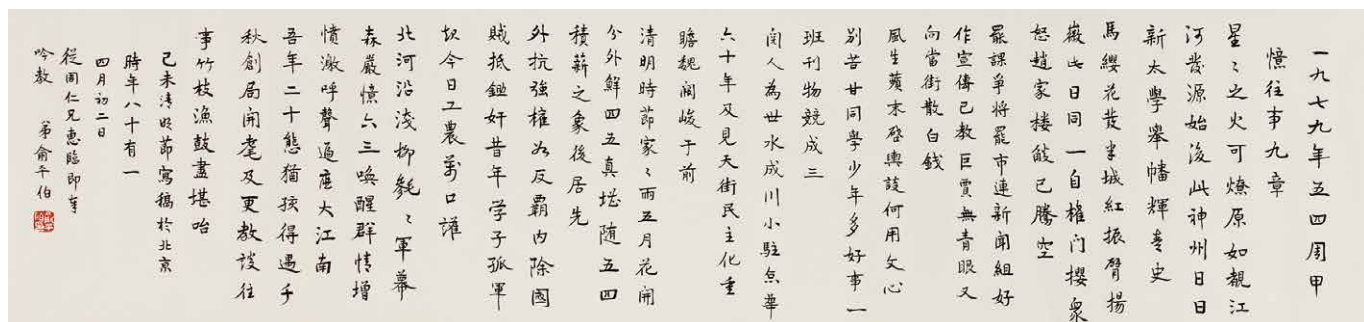 一九七九年五四周甲
憶往事九章
星〻之火可燎原如觀江
河發源始後此神州日日
新太學舉幡輝青史
馬纓花發半城紅振臂揚
徽此日同一自權門攖衆
怒趙家樓燄已騰空
罷課爭將罷市連新聞組好
作宣傳已教巨賈無青眼又
向當街散白錢
風生蘋末啓輿談何用文心
別苦甘同學少年多好事一
班刊物競成三
閱人為世水成川小駐京華
六十年及見天街民主化重
瞻魏闕峻于前
清明時節家〻雨五月花開
分外鮮四五真堪随五四
積薪之象後居先
外抗強權為反霸內除國
賊抵鋤奸昔年学子孤軍
起今日工農萬口讙
北河沿淺柳毿〻軍幕
森嚴憶六三喚醒群情增
憤激呼聲遍應大江南
吾年二十態猶孩得遇千
秋創局開耄及更教談往
事竹枝漁鼓盡堪咍
己未清明節寫稿於北京
時年八十有一
四月初二日
從周仁兄惠臨即享
吟教 弟俞平伯